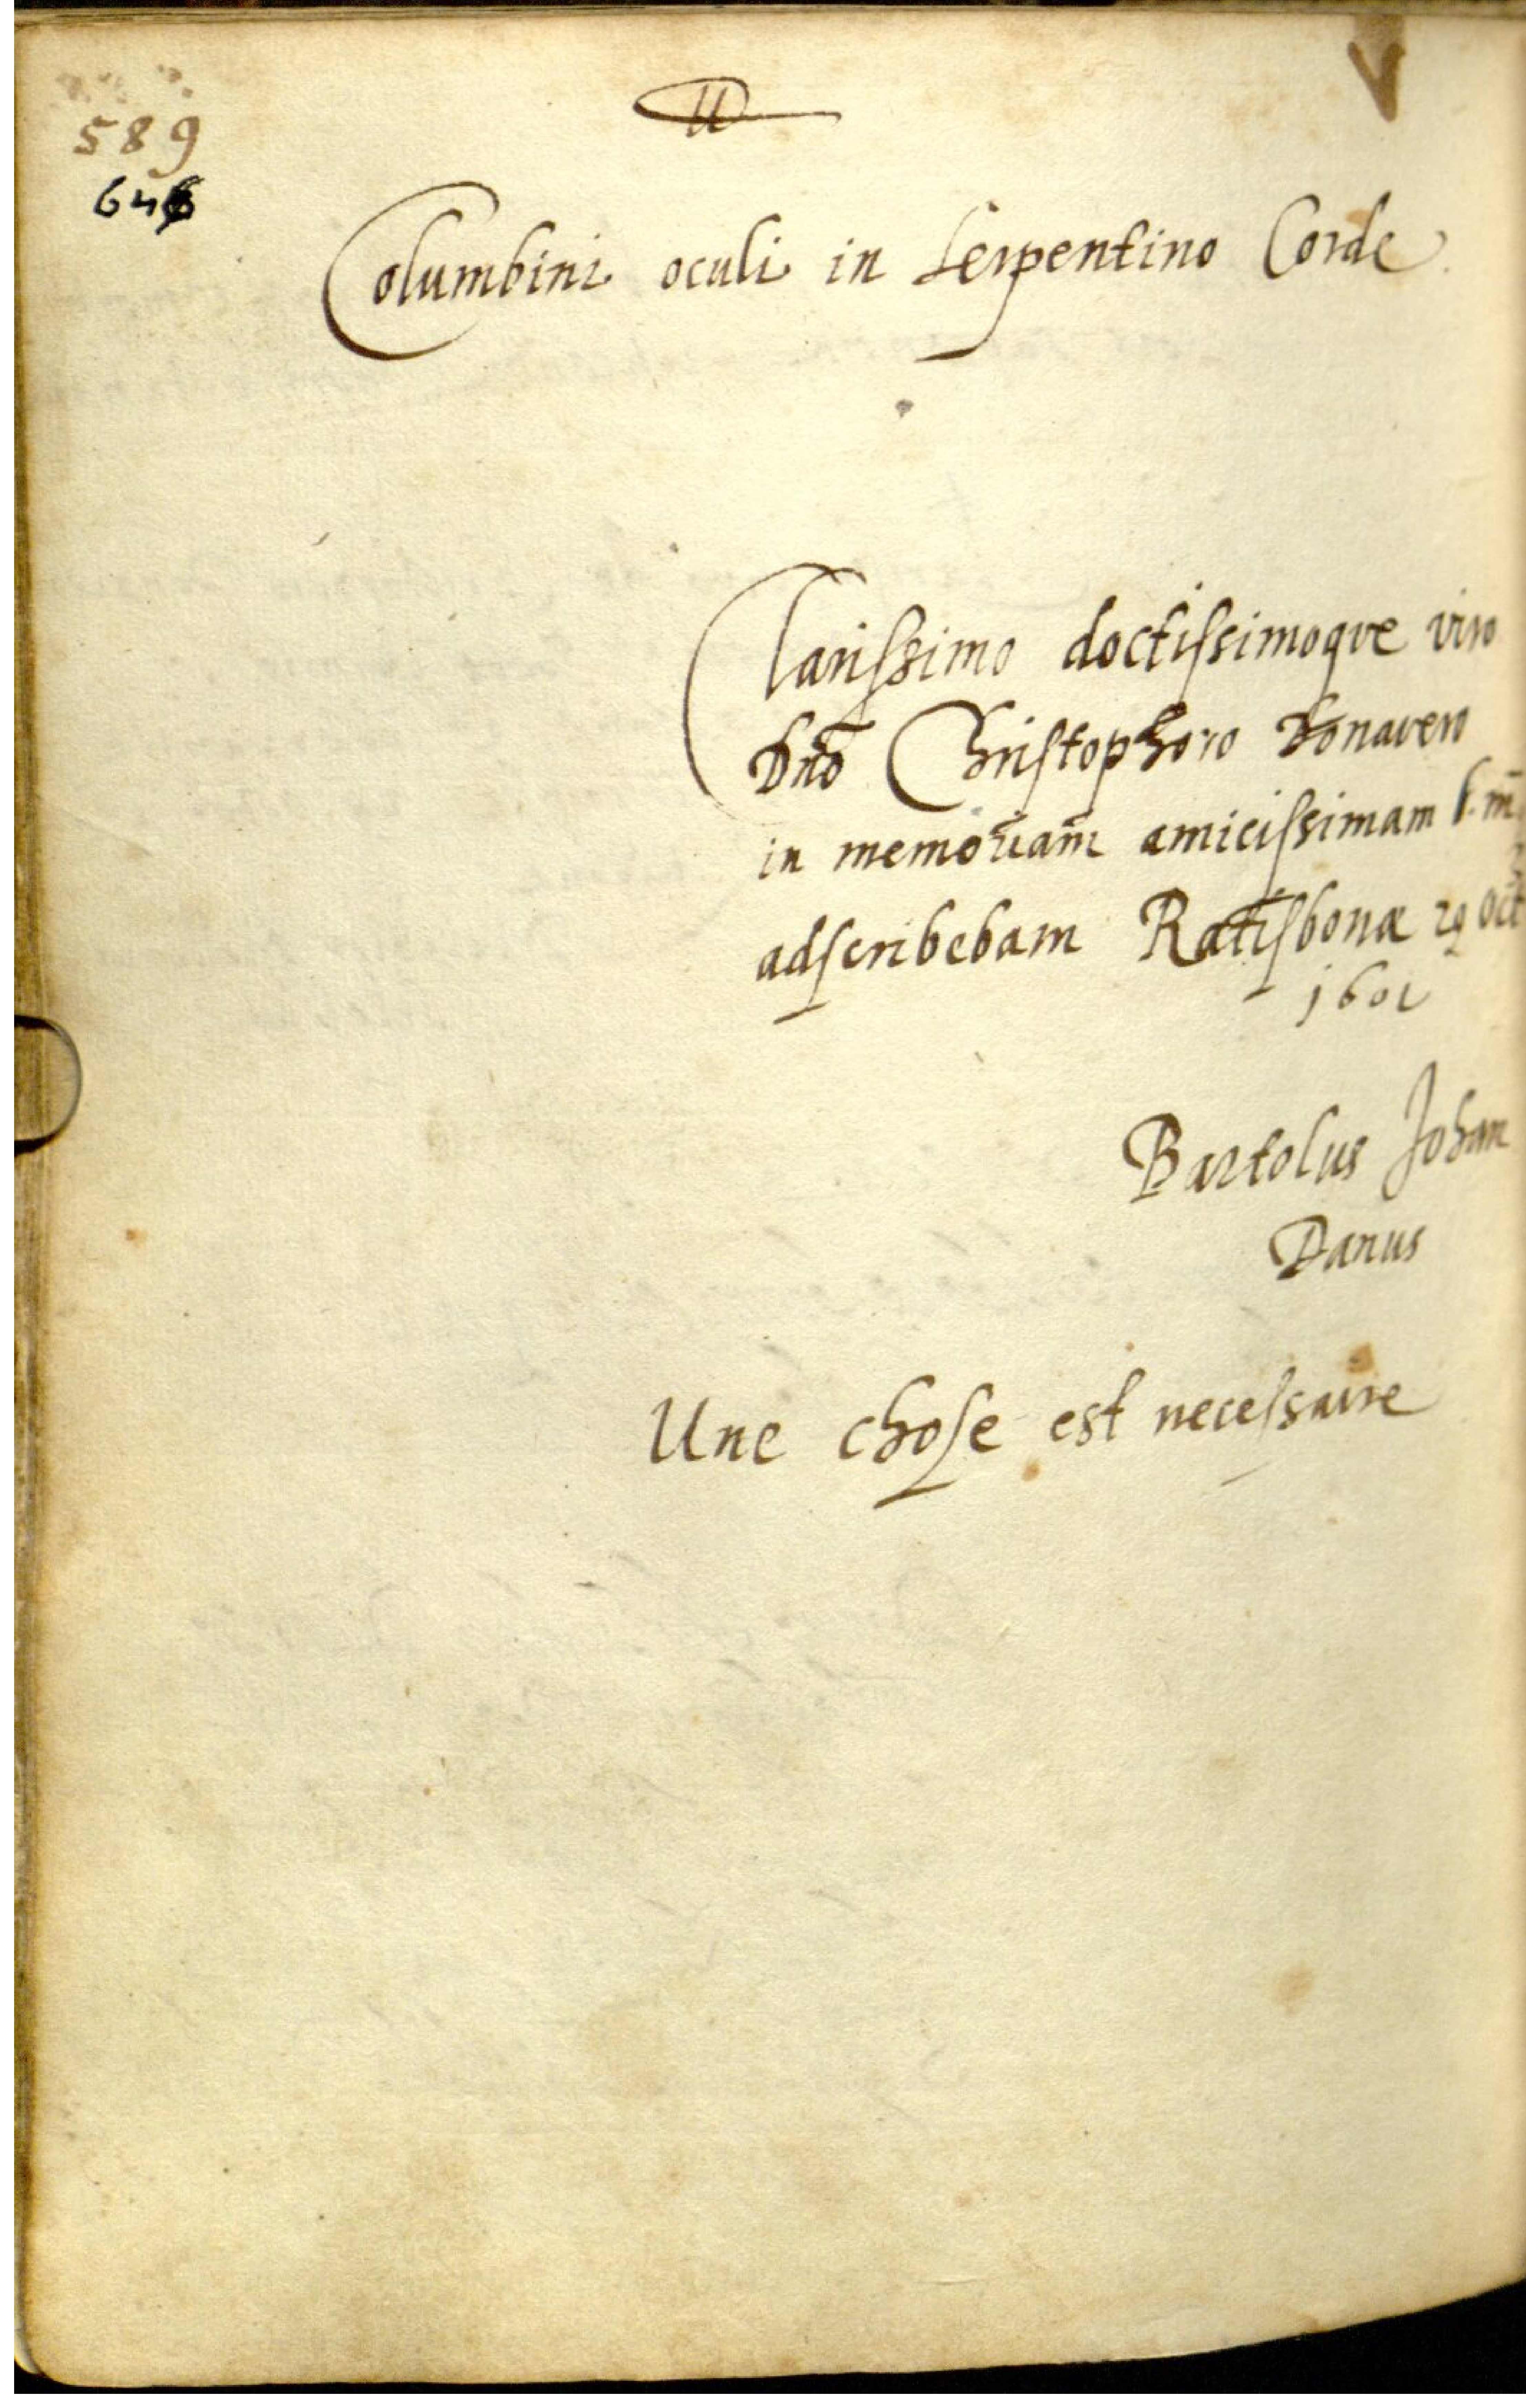 589
646
Columbini oculi in Serpentino Corde
Clarissimo doctissimoque viro
Dno Christophoro Donavero
in memoriam amicissimam
adscribebam Ratisbonæ 29 Oct
1601
Bartolus Johan
Danus
Une chose est necessaire